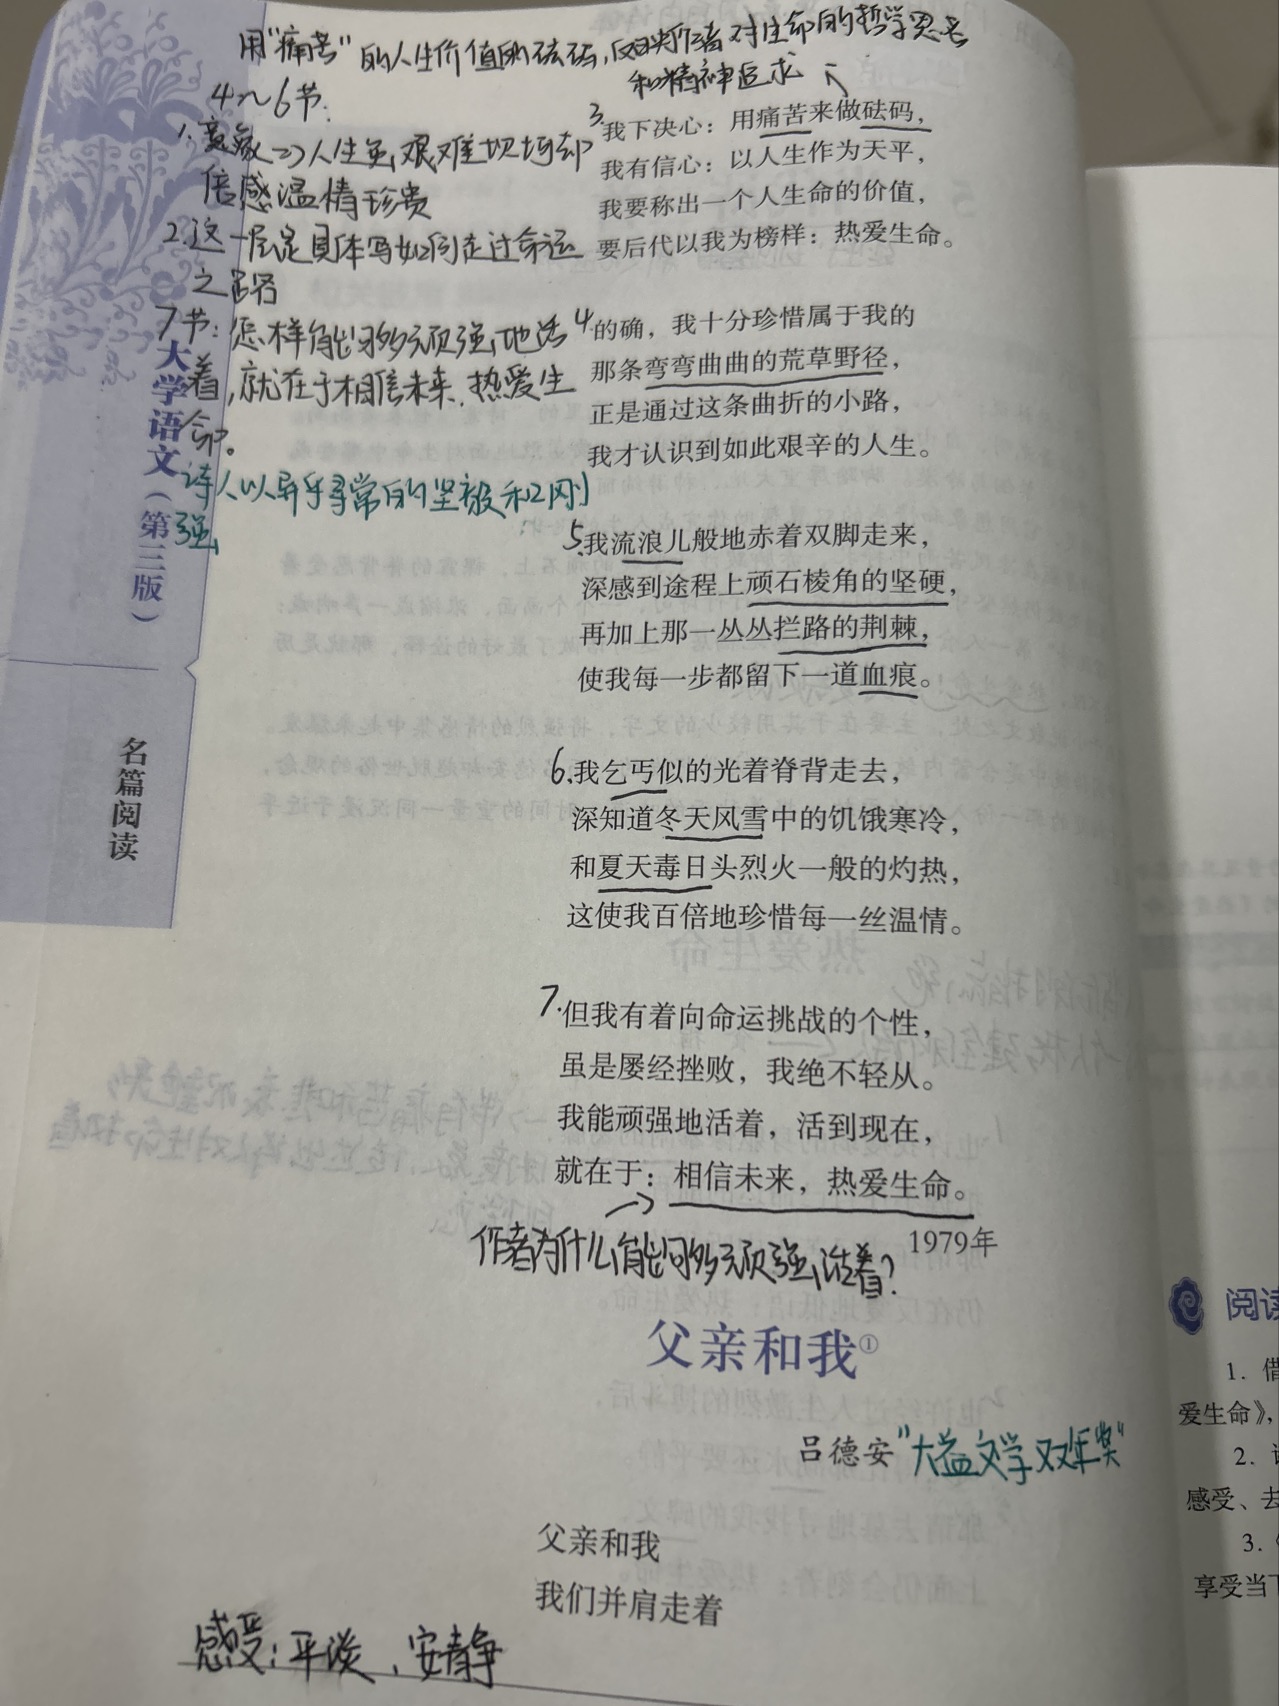 用"痛苦"的人生价值的砝码，反映作者对生命的哲学思考
和精神追求
4~6节：
1.意象=>人生虽艰难坎坷却
倍感温情珍贵
2.这一层是具体写如何走过命运
之路
7节：怎样能够顽强地活
着，就在于相信未来，热爱生
命。
诗人以异乎寻常的坚毅和刚
强
大学语文（第三版）
名篇阅读
3.我下决心：用痛苦来做砝码，
我有信心：以人生作为天平，
我要称出一个人生命的价值，
要后代以我为榜样：热爱生命。
4.的确，我十分珍惜属于我的
那条弯弯曲曲的荒草野径，
正是通过这条曲折的小路，
我才认识到如此艰辛的人生。
5.我流浪儿般地赤着双脚走来，
深感到途程上顽石棱角的坚硬，
再加上那一丛丛拦路的荆棘，
使我每一步都留下一道血痕。
6.我乞丐似的光着脊背走去，
深知道冬天风雪中的饥饿寒冷，
和夏天毒日头烈火一般的灼热，
这使我百倍地珍惜每一丝温情。
7.但我有着向命运挑战的个性，
虽是屡经挫败，我绝不轻从。
我能顽强地活着，活到现在，
就在于：相信未来，热爱生命。
1979年
作者为什么能够顽强活着？
父亲和我①
吕德安"大益文学双年奖"
父亲和我
我们并肩走着
感受：平淡、安静
阅读
1. 借
爱生命》，
2.
感受、去
3.
享受当下